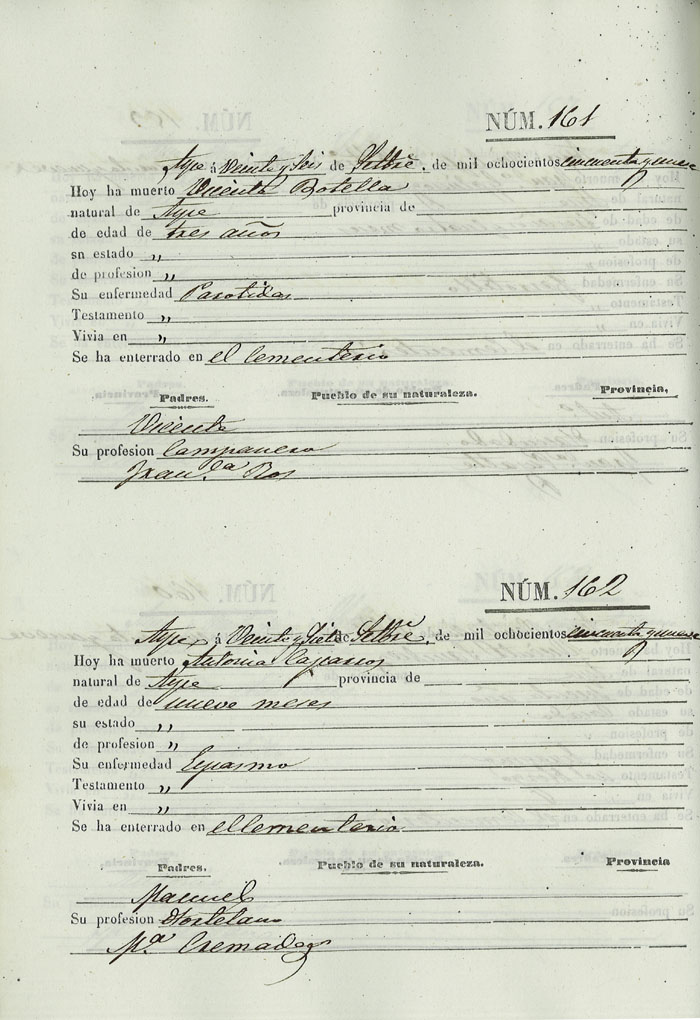 NÚM. 161
Aspe á Veinte y Seis de Setbre. de mil ochocientos cincuenta y nueve
Hoy ha muerto Vicenta Botella
natural de Aspe provincia de
de edad de tres años
sn estado „
de profesion „
Su enfermedad Parotidas
Testamento „
Vivia en „
Se ha enterrado en el Cementerio
Padres. Pueblo de su naturaleza. Provincia.
Vicente
Su profesion Campanero
Fran.ca Ros
NÚM. 162
Aspe á Veinte y Siete de Setbre. de mil ochocientos cincuenta y nueve
Hoy ha muerto Antonia Caparros
natural de Aspe provincia de
de edad de nueve meses
su estado „
de profesion „
Su enfermedad Espasmo
Testamento „
Vivia en „
Se ha enterrado en el Cementerio
Padres. Pueblo de su naturaleza. Provincia
Manuel
Su profesion Hortelano
Mª Cremades